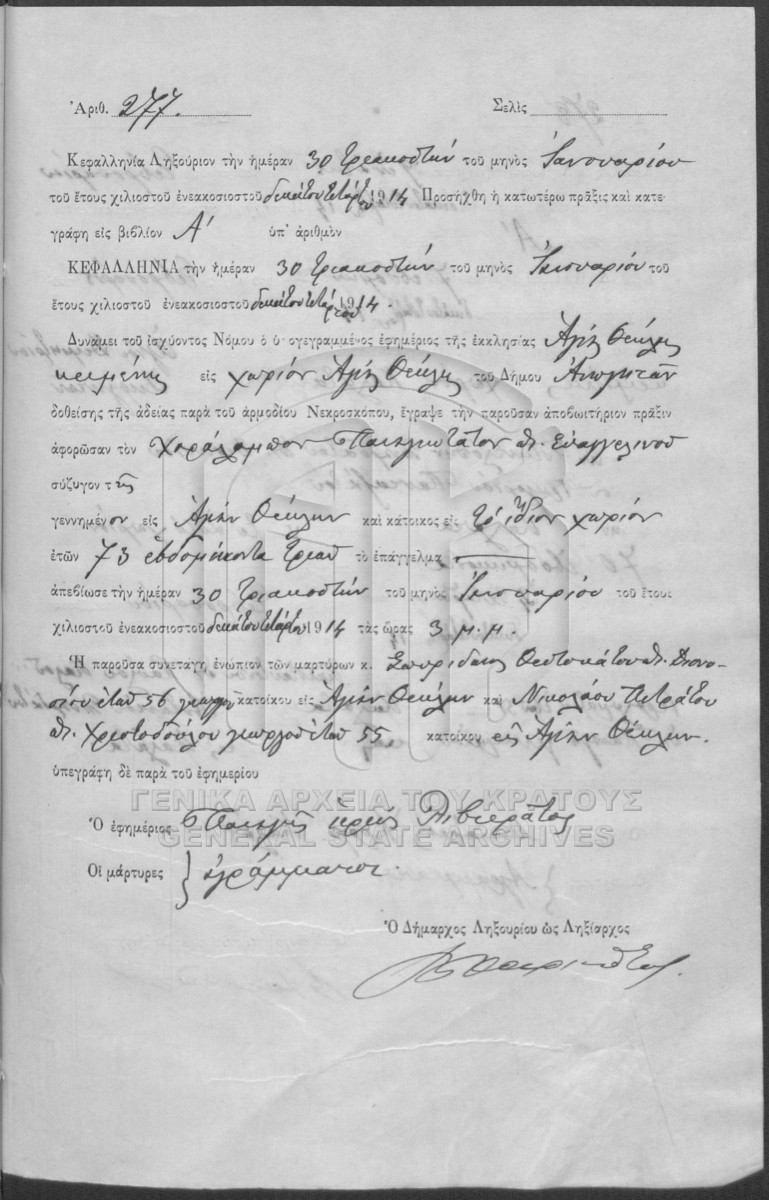 Ἀριθ. 277. Σελὶς
Κεφαλληνία Ληξούριον τὴν ἡμέραν 30 τριακοστὴν τοῦ μηνὸς Ἰανουαρίου
τοῦ ἔτους χιλιοστοῦ ἐνεακοσιοστοῦ δεκάτου τετάρτου 1914 Προσήχθη ἡ κατωτέρω πρᾶξις καὶ κατε-
γράφη εἰς βιβλίον Α' ὑπ' ἀριθμὸν
ΚΕΦΑΛΛΗΝΙΑ τὴν ἡμέραν 30 τριακοστὴν τοῦ μηνὸς Ἰανουαρίου τοῦ
ἔτους χιλιοστοῦ ἐνεακοσιοστοῦ δεκάτου τετάρτου 1914.
Δυνάμει τοῦ ἰσχύοντος Νόμου ὁ ὑπογεγραμμένος ἐφημέριος τῆς ἐκκλησίας Ἁγίης Θέκλης
κειμένης εἰς χωρίον Ἁγίης Θέκλης τοῦ Δήμου Ἀνωγητῶν
δοθείσης τῆς ἀδείας παρὰ τοῦ ἁρμοδίου Νεκροσκόπου, ἔγραψε τὴν παροῦσαν ἀποβιωτήριον πρᾶξιν
ἀφορῶσαν τὸν Χαράλαμπον Παναγιωτᾶτον π. Εὐαγγελινοῦ
σύζυγον τῆς
γεννημένον εἰς Ἁγίην Θέκλην καὶ κάτοικος εἰς τὸ ἴδιον χωρίον
ἐτῶν 73 ἑβδομήκοντα τριῶν τὸ ἐπάγγελμα —
ἀπεβίωσε τὴν ἡμέραν 30 τριακοστὴν τοῦ μηνὸς Ἰανουαρίου τοῦ ἔτους
χιλιοστοῦ ἐνεακοσιοστοῦ δεκάτου τετάρτου 1914 τὰς ὥρας 3 μ.μ.
Ἡ παροῦσα συνετάγη ἐνώπιον τῶν μαρτύρων κ. Σπυρίδωνος Θεοτοκάτου π. Διονυ-
σίου ἐτῶν 56 γεωργοῦ κατοίκου εἰς Ἁγίην Θέκλην καὶ Νικολάου Πετράτου
π. Χριστοδούλου γεωργοῦ ἐτῶν 55, κατοίκου εἰς Ἁγίην Θέκλην.
ὑπεγράφη δὲ παρὰ τοῦ ἐφημερίου
ΓΕΝΙΚΑ ΑΡΧΕΙΑ ΤΟΥ ΚΡΑΤΟΥΣ
Ὁ ἐφημέριος Παναγῆς ἱερεὺς Λιβιεράτος
GENERAL STATE ARCHIVES
Οἱ μάρτυρες } ἀγράμματοι.
Ὁ Δήμαρχος Ληξουρίου ὡς Ληξίαρχος